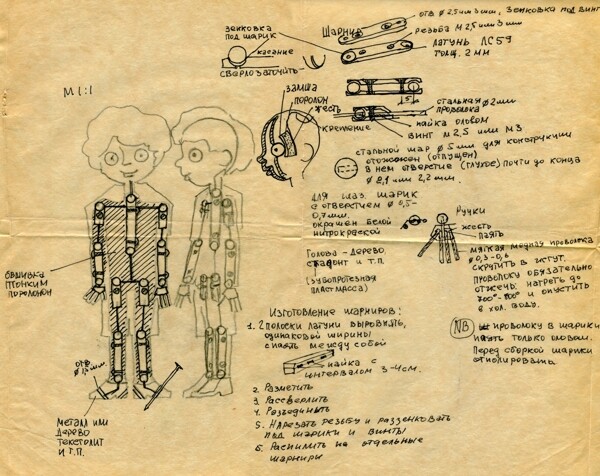 отв ⌀ 2,5 или 3 мм, зенковка под винт
Шарнир
резьба М 2,5 или 3 мм
латунь ЛС 59
толщ. 2 мм
зенковка
под шарик
касание
сверло заточить
М 1:1
замша
поролон
жесть
крепление
5
стальная ⌀ 2 мм
проволока
пайка оловом
винт М 2,5 или М3
стальной шар ⌀ 5 мм для конструкции
отожжен (отпущен)
в нем отверстие (глухое) почти до конца
⌀ 2,1 или 2,2 мм.
Для глаз. шарик
с отверстием ⌀ 0,5-
0,7 мм.
окрашен белой
нитрокраской
Голова - дерево
и т.п.
(зубопротезная
пластмасса)
Ручки
жесть
паять
мягкая медная проволока
⌀ 0,3-0,6
скрутить в жгут.
проволоку обязательно
отжечь: нагреть до
и опустить
в хол. воду.
NB
проволоку в шарики
паять только оловом.
Перед сборкой шарики
отполировать
обшивка
тонким
поролоном
отв
металл или
дерево
текстолит
и т.п.
Изготовление шарниров:
1. 2 полоски латуни выровнять,
одинаковой ширины
спаять между собой
пайка с
интервалом 3-4 см.
2. Разметить
3. Рассверлить
4. Разъединить
5. Нарезать резьбу и раззенковать
под шарики и винты
6. Распилить на отдельные
шарниры